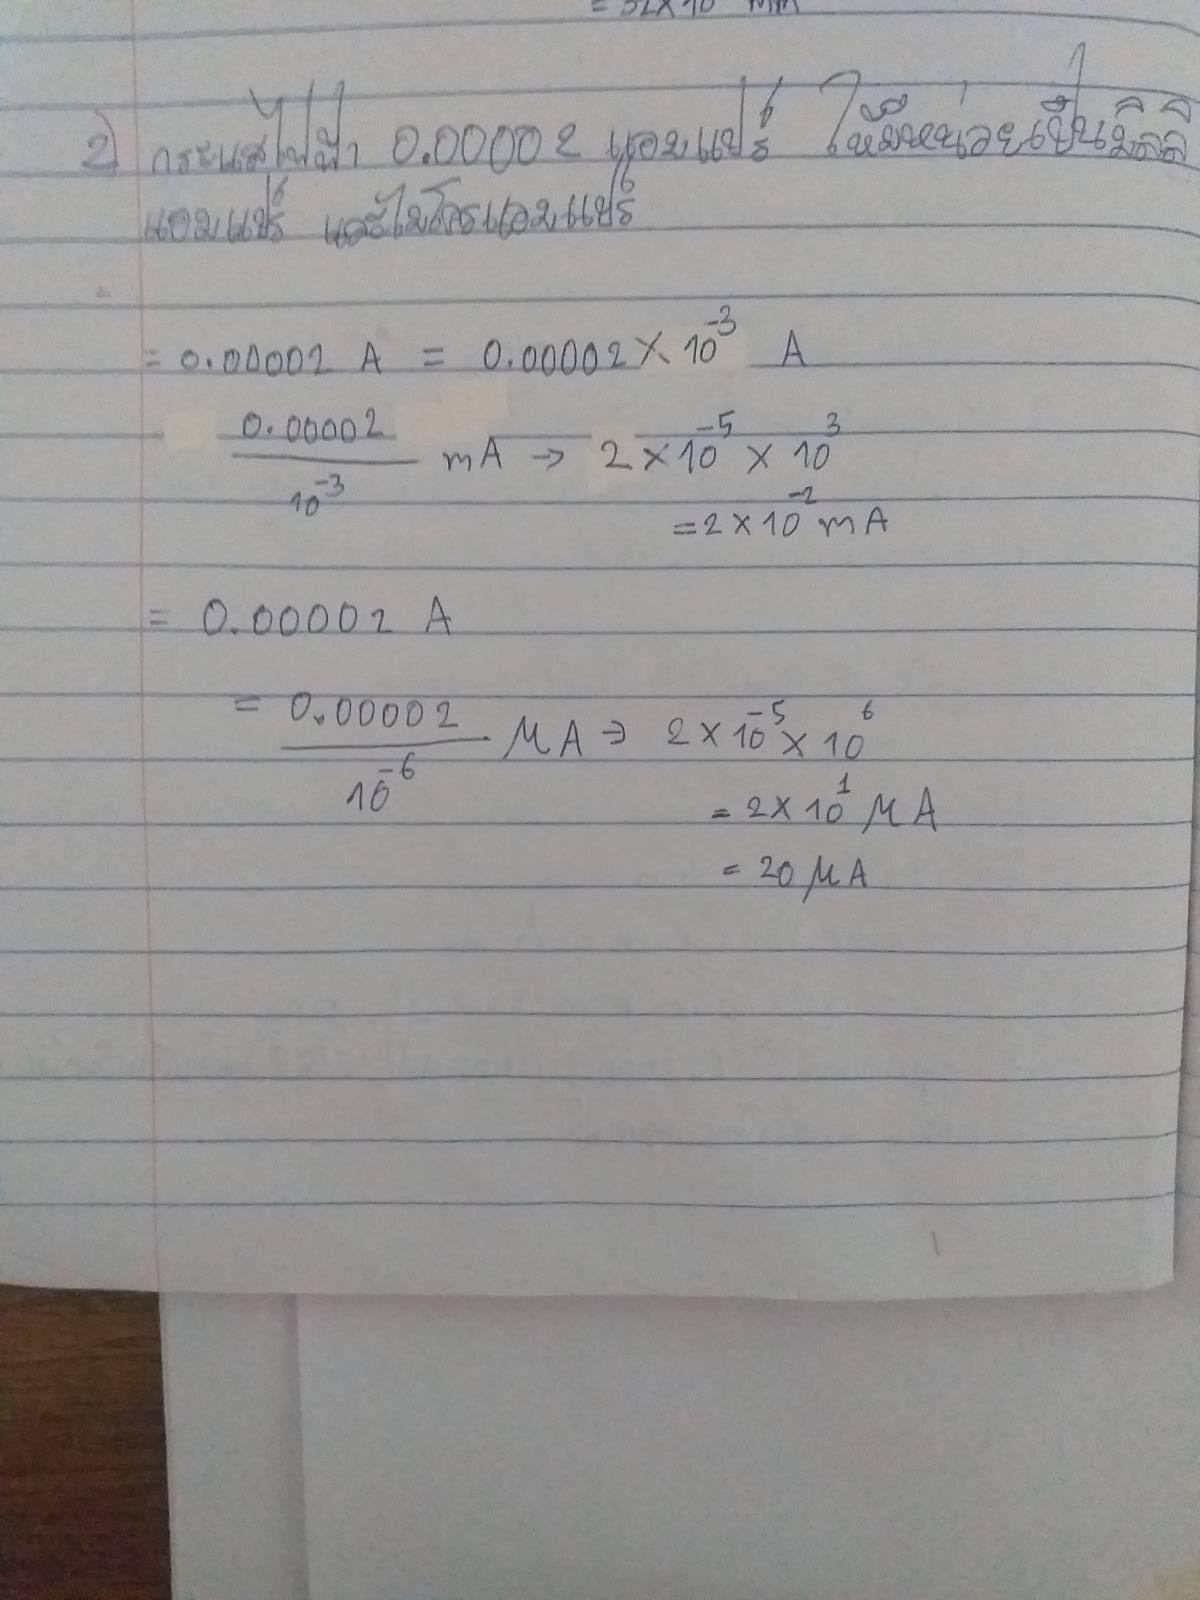 = 32×10 mm
2) กระแสไฟฟ้า 0.00002 แอมแปร์ ให้มีหน่วยเป็นมิลลิ
แอมแปร์ และไมโครแอมแปร์
= 0.00002 A = 0.00002 × 10⁻³ A
0.00002 / 10⁻³ mA → 2 × 10⁻⁵ × 10³
= 2 × 10⁻² mA
= 0.00002 A
= 0.00002 / 10⁻⁶ μA → 2 × 10⁻⁵ × 10⁶
= 2 × 10¹ μA
= 20 μA